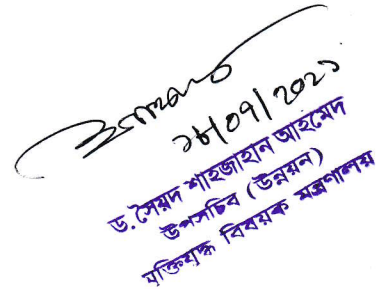 ২৮/০৭/২০২১
ড. সৈয়দ শাহজাহান আহমেদ
উপসচিব (উন্নয়ন)
মুক্তিযুদ্ধ বিষয়ক মন্ত্রণালয়